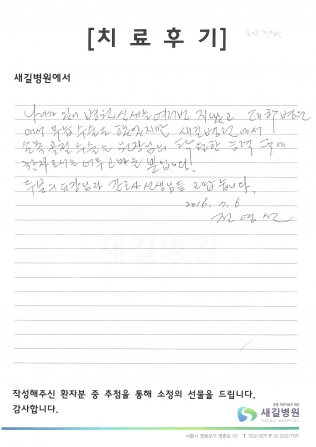 [치료후기]
새길병원에서
나이가 있어 병원신세는 여러번 지었고 대학병원
에서 무릎수술도 했었지만 새길병원에서
손목 골절 수술은 원장님의 탁월한 능력
환자로서는 너무 고마울 뿐입니다!
두분의 원장님과 간호사선생님들 고맙습니다.
2016. 7. 6
새길병원
작성해주신 환자분 중 추첨을 통해 소정의 선물을 드립니다.
감사합니다.
새길병원
SAEGIL HOSPITAL